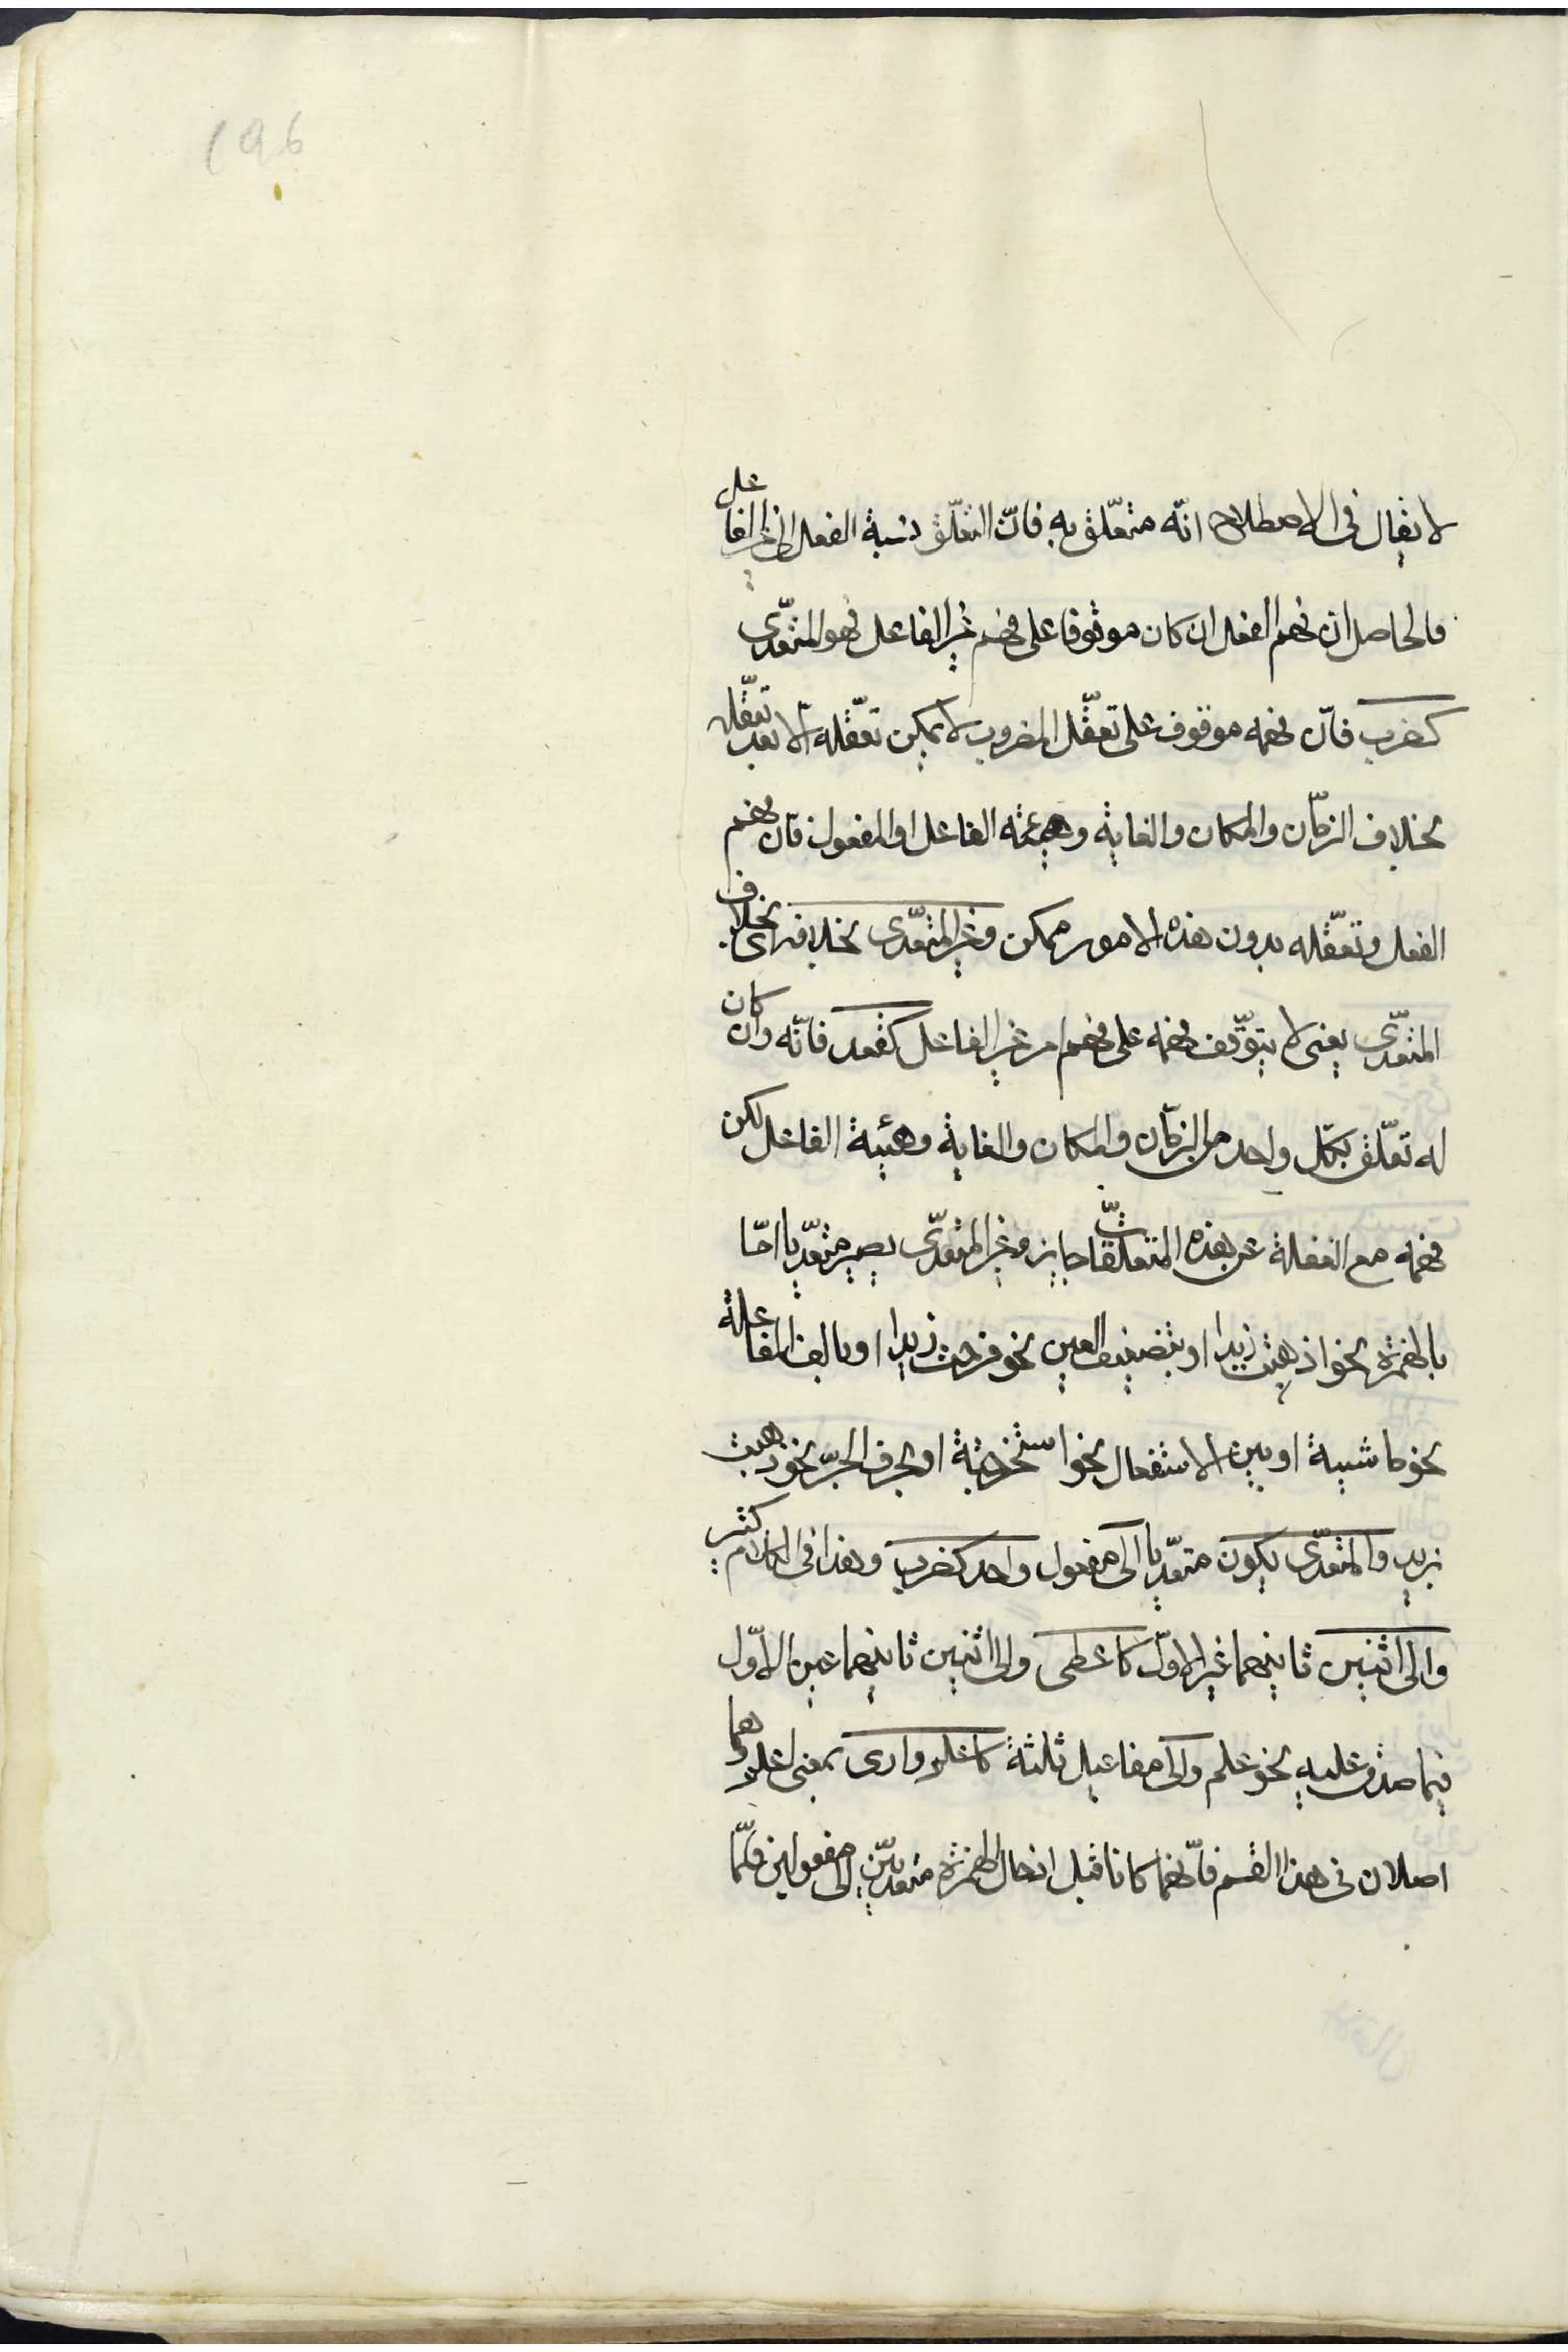 196
لا يقال فى الاصطلاح انّه متعلّق به فانّ التعلّق نسبة الفعل الى غير الفاعل
فالحاصل ان فهم الفعل ان كان موقوفا على فهم غير الفاعل فهو المتعدّى
كضرب فانّ فهمه موقوف على تعقّل المضروب لا يمكن تعقّله الا بعد تعقّله
بخلاف الزمان والمكان والغاية وهيئة الفاعل او المفعول فان فهم
الفعل وتعقّله بدون هذه الامور ممكن وغير المتعدّى بخلافه اى بخلاف
المتعدّى يعنى لا يتوقّف فهمه على فهم امر غير الفاعل كقعد فانّه وان كان
له تعلّق بكلّ واحد من الزمان والمكان والغاية وهيئة الفاعل لكن
فهمه مع الغفلة عن هذه المتعلّقات جايز وغير المتعدّى يصير متعدّيا امّا
بالهمزة نحو اذهبت زيدا او بتضعيف العين نحو فرحت زيدا او بالف المفاعلة
نحو ماشيته او بسين الاستفعال نحو استخرجته او بحرف الجرّ نحو ذهبت
بزيد والمتعدّى يكون متعدّيا الى مفعول واحد كضرب وهذا فى الكلام كثير
والى اثنين ثانيهما غير الاوّل كاعطى والى اثنين ثانيهما عين الاوّل
فيما صدق عليه نحو علم والى مفاعيل ثلثة كاعلم وارى بمعنى اعلم وهما
اصلان فى هذا القسم فانّهما كانا قبل ادخال الهمزة متعديّين الى مفعولين فلمّا